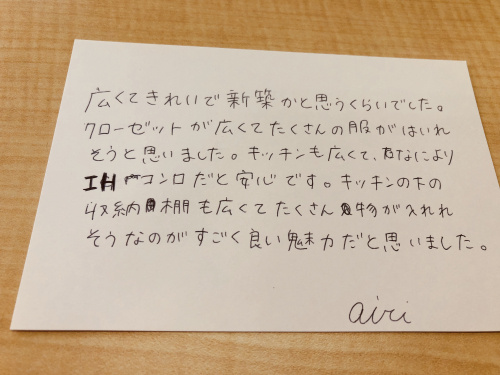 広くてきれいで新築かと思うくらいでした。
クローゼットが広くてたくさんの服がはいれ
そうと思いました。キッチンも広くて、なにより
IHコンロだと安心です。キッチンの下の
収納棚も広くてたくさん物が入れれ
そうなのがすごく良い魅力だと思いました。
airi